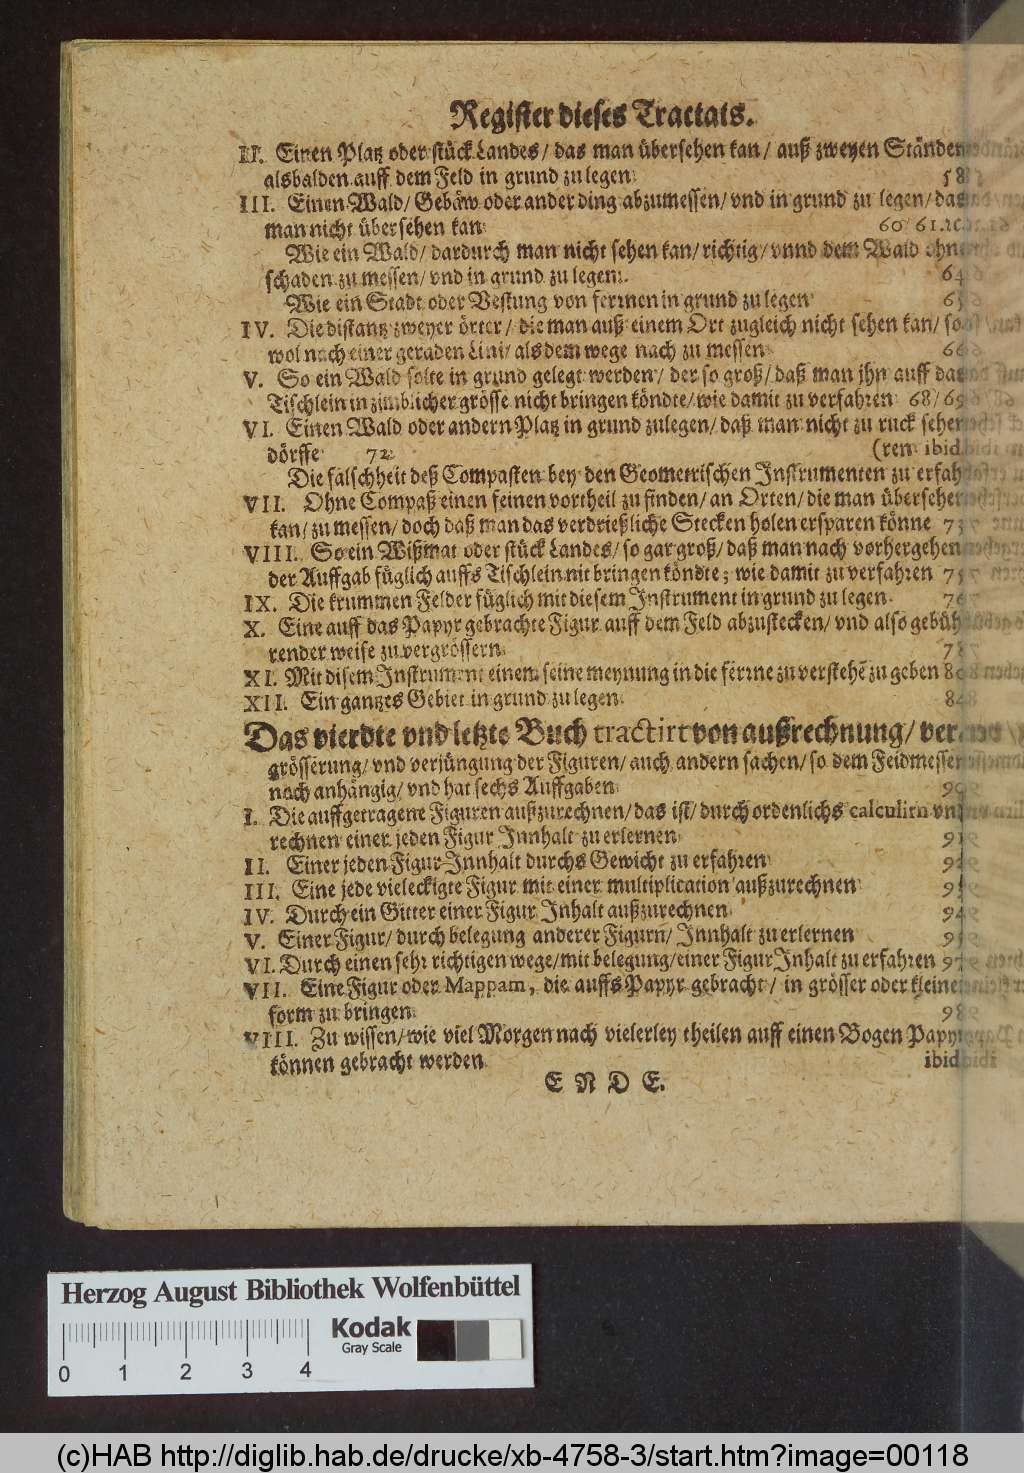 Register dieses Tractats.
II. Einen Platz oder stück Landes/ das man übersehen kan/ auß zweyen Ständen
alsbalden auff dem Feld in grund zu legen 58
III. Einen Wald/ Gebäw oder ander ding abzumessen/ vnd in grund zu legen/ das
man nicht übersehen kan 60/ 61.
Wie ein Wald/ dardurch man nicht sehen kan/ richtig/ vnnd dem Wald ohne
schaden zu messen/ vnd in grund zu legen. 64
Wie ein Stadt oder Vestung von fermen in grund zu legen
IV. Die distantz zweyer örter/ die man auß einem Ort zugleich nicht sehen kan/ so
wol nach einer geraden Lini/ als dem wege nach zu messen 66
V. So ein Wald solte in grund gelegt werden/ der so groß/ daß man jhn auff das
Tischlein in zimblicher grösse nicht bringen köndte/ wie damit zu verfahren 68/ 69
VI. Einen Wald oder andern Platz in grund zulegen/ daß man nicht zu ruck sehen
dörffe 72 (ren ibid.
Die falschheit deß Compasten bey den Geometrischen Instrumenten zu erfah-
VII. Ohne Compaß einen feinen vortheil zu finden/ an Orten/ die man übersehen
kan/ zu messen/ doch daß man das verdrießliche Stecken holen ersparen könne 73
VIII. So ein Wißmat oder stück Landes/ so gar groß/ daß man nach vorhergehen-
der Auffgab füglich auffs Tischlein nit bringen köndte; wie damit zu verfahren 75
IX. Die krummen Felder füglich mit diesem Instrument in grund zu legen 76
X. Eine auff das Papyr gebrachte Figur auff dem Feld abzustecken/ vnd also gebüh-
render weise zu vergrössern 78
XI. Mit disem Instrument einem seine meynung in die ferme zu verstehẽ zu geben 80
XII. Ein gantzes Gebiet in grund zu legen 84
Das vierdte vnd letzte Buch tractirt von außrechnung/ ver-
grösserung/ vnd verjüngung der Figuren/ auch andern sachen/ so dem Feldmessen
noch anhängig/ vnd hat sechs Auffgaben 90
I. Die auffgetragene Figuren außzurechnen/ das ist/ durch ordenlichs calculirn vnd
rechnen einer jeden Figur Innhalt zu erlernen
II. Einer jeden Figur Innhalt durchs Gewicht zu erfahren
III. Eine jede vieleckigte Figur mit einer multiplication außzurechnen
IV. Durch ein Gitter einer Figur Inhalt außzurechnen 94
V. Einer Figur/ durch belegung anderer Figurn/ Innhalt zu erlernen
VI. Durch einen sehr richtigen wege/ mit belegung/ einer Figur Inhalt zu erfahren
VII. Eine Figur oder Mappam, die auffs Papyr gebracht/ in grösser oder kleiner
form zu bringen 98
VIII. Zu wissen/ wie viel Morgen nach vielerley theilen auff einen Bogen Papyr
können gebracht werden ibid.
E N D E.
Herzog August Bibliothek Wolfenbüttel
Kodak
Gray Scale
0 1 2 3 4
(c)HAB http://diglib.hab.de/drucke/xb-4758-3/start.htm?image=00118